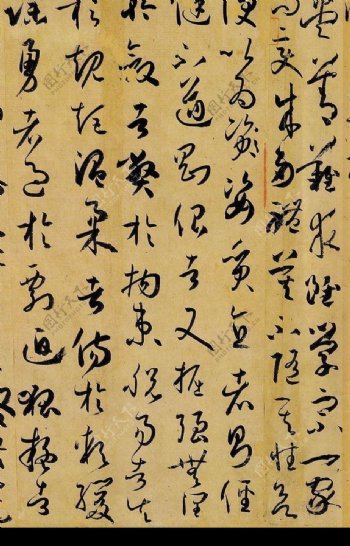 盡善難求雖學宗一家
而變成多體莫不隨其性欲
便以為姿質直者則徑
侹不遒剛佷者又掘強無潤
矜斂者弊於拘束脫易者失
於規矩溫柔者傷於軟緩
躁勇者過於剽迫狐疑者